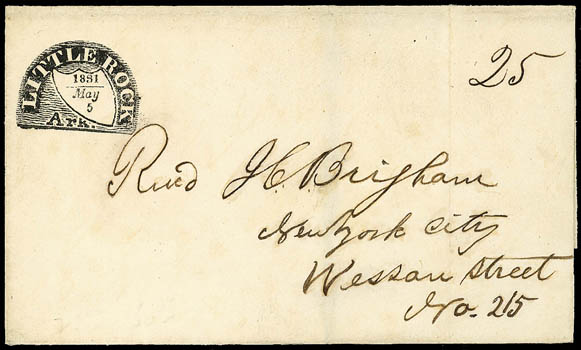 LITTLE ROCK
1831
May
5
Ark.
25
Revd J C Brigham
New York City
Wessau Street
No. 215